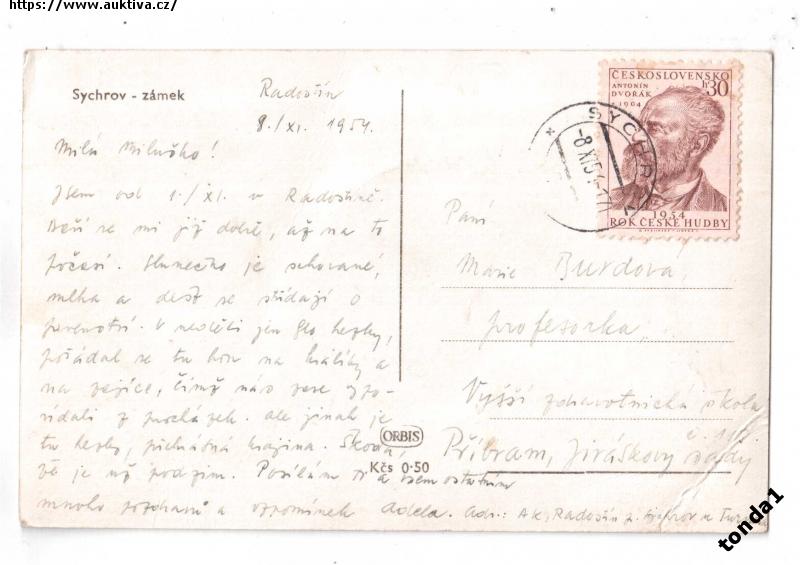 https://www.auktiva.cz/
Sychrov - zámek
Radostín
8./XI. 1954.
Milá Miluško!
Jsem od 1./XI. v Radostíně.
Daří se mi již dobře, až na to
počasí. Slunečko je schované,
mlha a déšť se střídají o
panství. V neděli jen bylo hezky,
pořádal se tu hon na králíky a
na zajíce, čímž nás zase vypo-
řádali z procházek. Ale jinak je
tu hezky, půvabná krajina. Škoda,
že je už podzim. Posílám Ti a všem ostatním
mnoho pozdravů a vzpomínek Adela. Adr.: AK, Radostín p. Sychrov u
ČESKOSLOVENSKO
ANTONÍN
DVOŘÁK
h 30
1904
1954
ROK ČESKÉ HUDBY
SYCHROV
-8.XI.54-17
Paní
Marie Burdova,
profesorka,
Vyšší zdravotnická škola
Příbram, Jiráskovy sady
č.
ORBIS
Kčs 0·50
tonda1